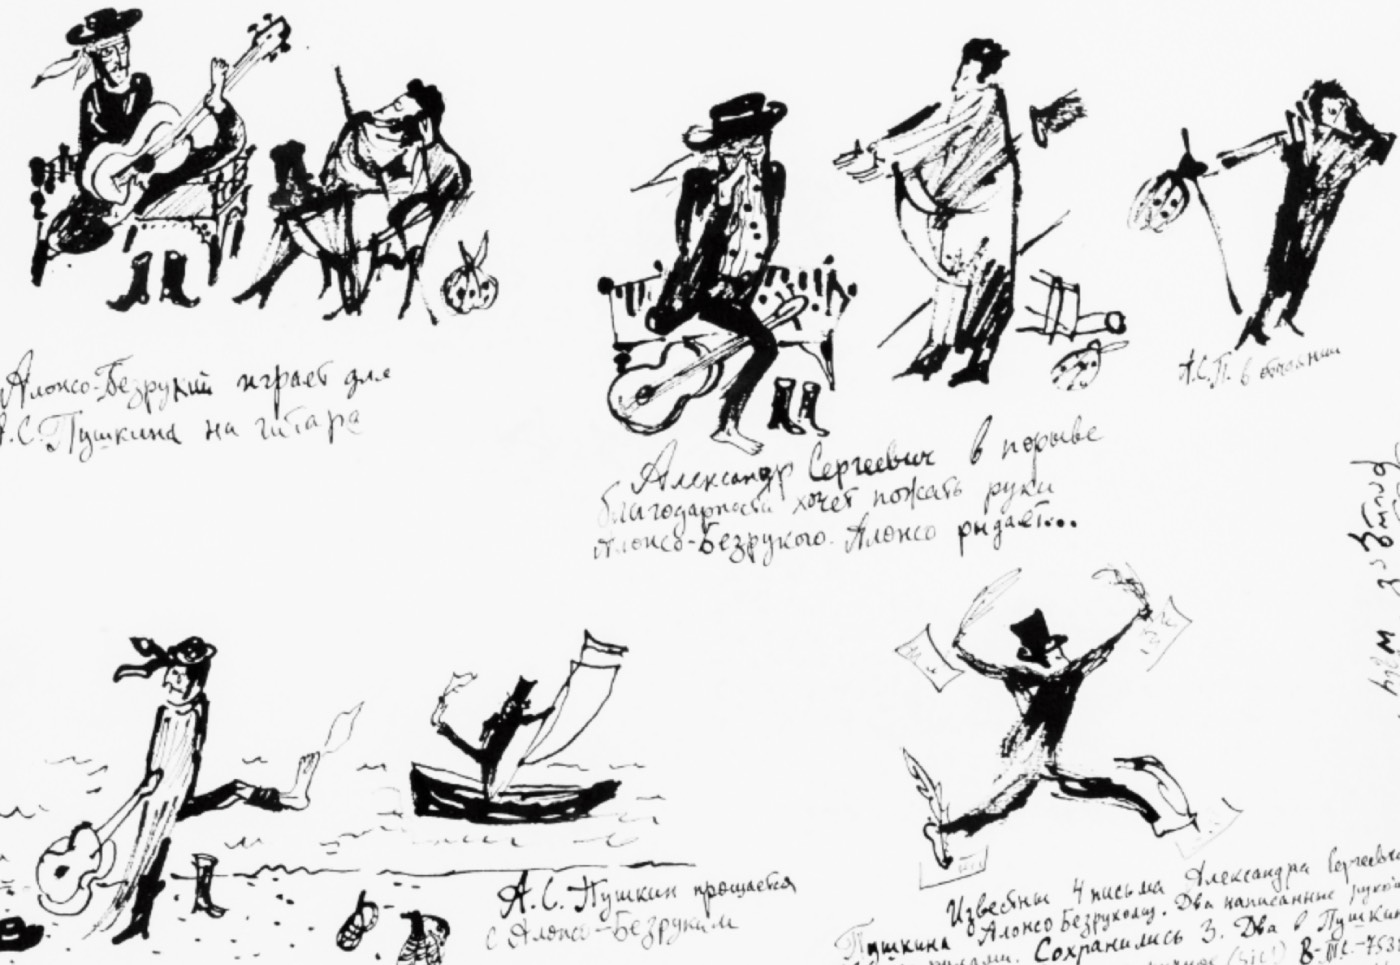 Алонсо-Безрукий играет для
А.С.Пушкина на гитаре
Александр Сергеевич в порыве
благодарности хочет пожать руки
Алонсо-Безрукого. Алонсо рыдает...
А.С.П. в отчаянии
А.С.Пушкин прощается
с Алонсо-Безруким
Известны 4 письма Александра Сергеевича
Пушкина Алонсо Безрукому. Два написанные рукой
Сохранились 3. Два в Пушкин
(sic!)